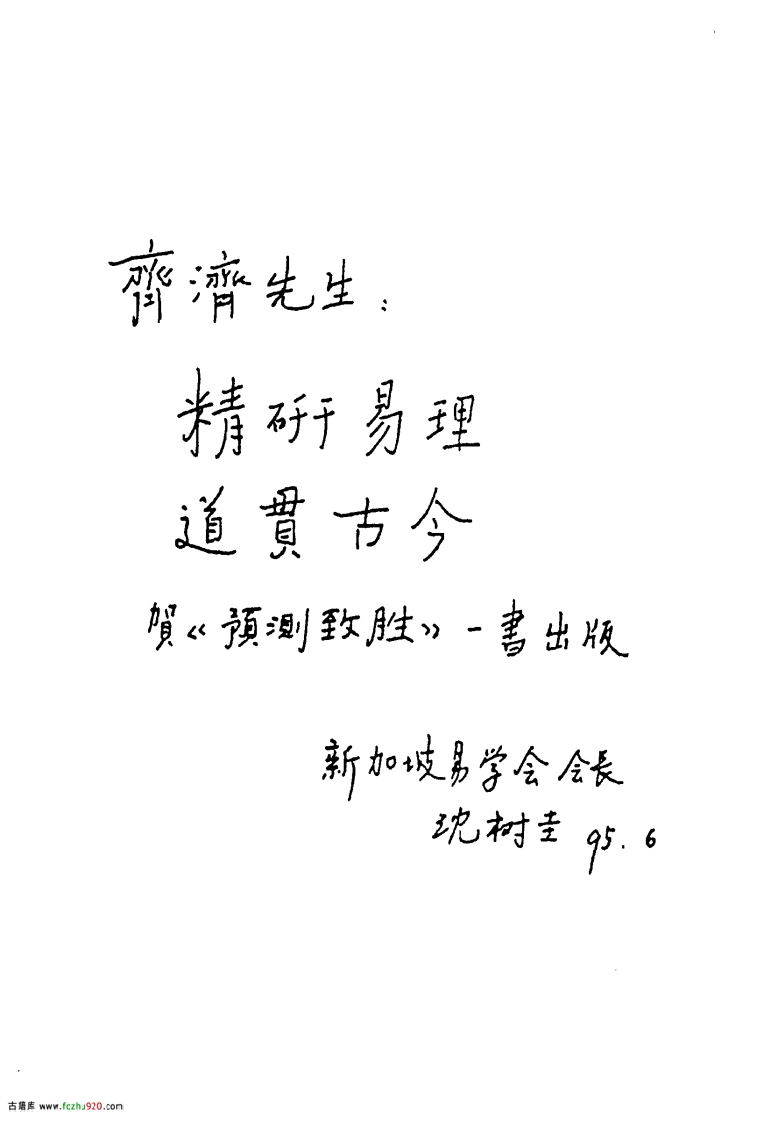 齊濟先生：
精研易理
道貫古今
賀《預測致胜》一書出版
新加坡易学会会長
沈树圭 95.6
古籍库 www.fozhu920.com